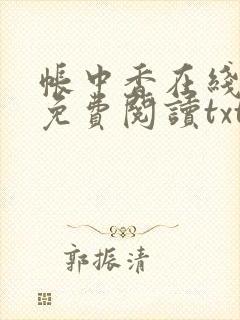 帳中香在綫
免費閱讀txt
郭振清